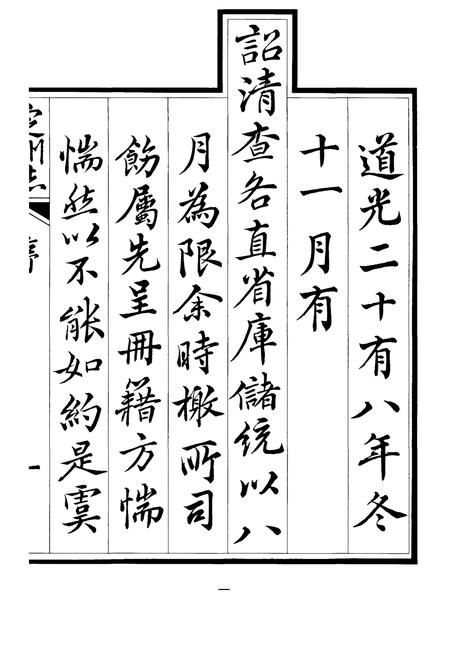 道光二十有八年冬
十一月有
詔清查各直省庫儲統以八
月為限余時檄所司
飭屬先呈冊籍方惴
惴然以不能如約是虞
定州志
序
一
一